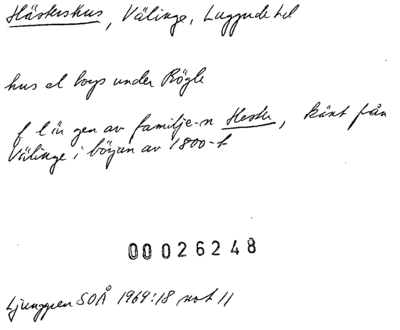 Hästershus, Välinge, Luggude hd
hus el torp under Rögle
f l in gen av familje-n Hester, känt från
Välinge i början av 1800-t
00026248
Ljunggren SOÅ 1969:18 not 11